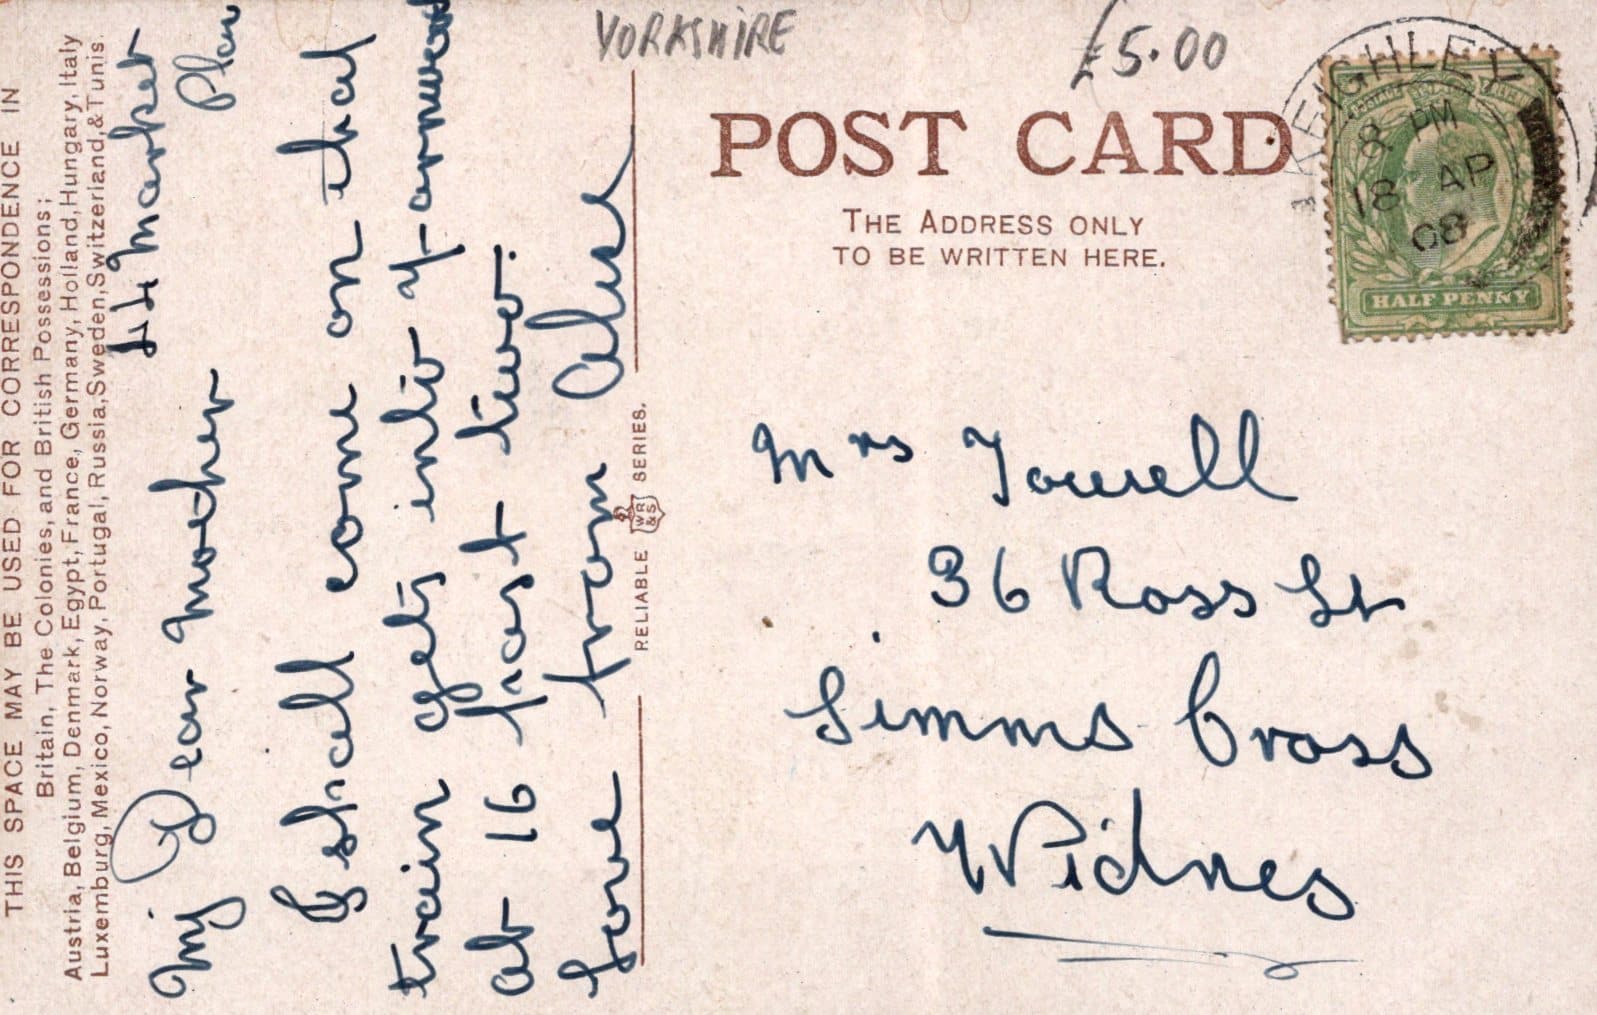 YORKSHIRE
£5.00
POST CARD
THE ADDRESS ONLY
TO BE WRITTEN HERE.
KEIGHLEY
8 PM
18 AP
08
HALF PENNY
Mrs Towell
36 Ross St
Simms Cross
Widnes
THIS SPACE MAY BE USED FOR CORRESPONDENCE IN
Britain, The Colonies, and British Possessions;
Austria, Belgium, Denmark, Egypt, France, Germany, Holland, Hungary, Italy
Luxemburg, Mexico, Norway, Portugal, Russia, Sweden, Switzerland, & Tunis.
44 Market
My Dear Mother
I shall come on that
train gets into
at 16 past two.
love from
RELIABLE WR&S SERIES.